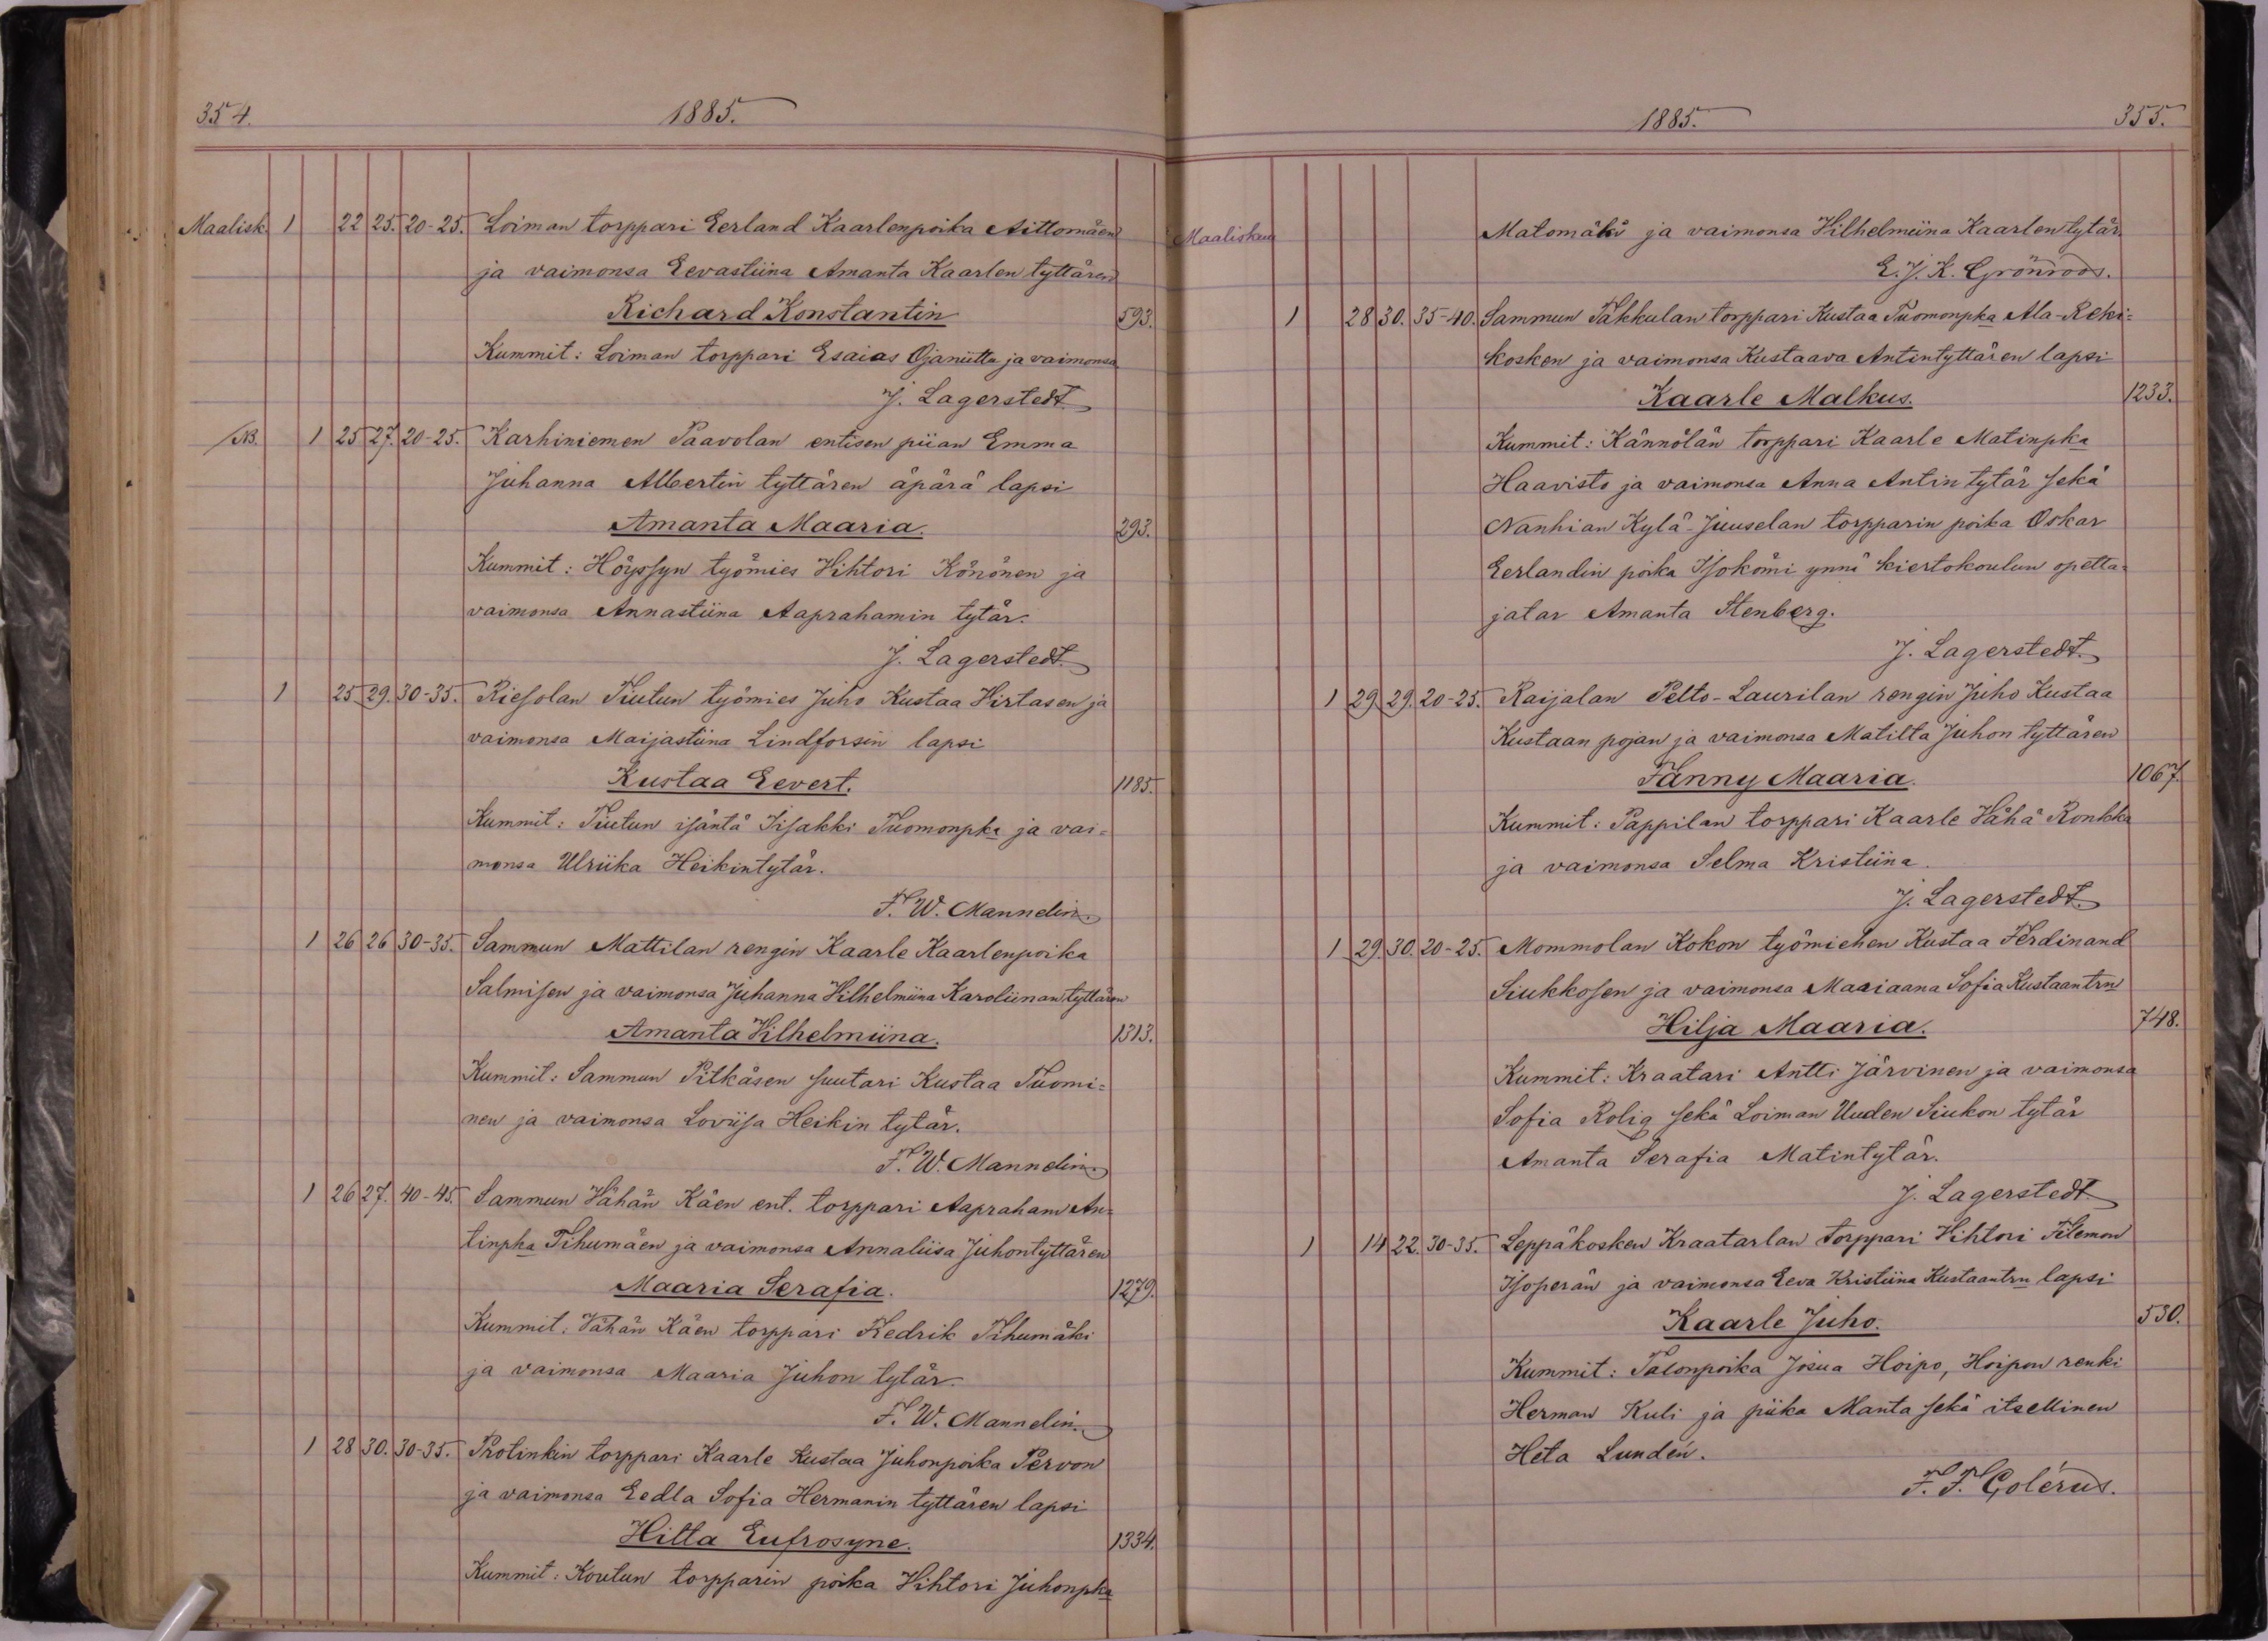 354. 1885.
Maalisk. 1 22 25. 20-25. Loiman torppari Eerland Kaarlenpoika Aittomäen
ja vaimonsa Eevastiina Amanta Kaarlen tyttären
Richard Konstantin 593.
Kummit: Loiman torppari Esaias Ojaniittu ja vaimonsa
J. Lagerstedt.
NB. 1 25 27. 20-25. Karhiniemen Paavolan entisen piian Emma
Juhanna Albertin tyttären äpärä lapsi
Amanta Maaria. 293.
Kummit: Höyssyn työmies Vihtori Könönen ja
vaimonsa Annastiina Aaprahamin tytär.
J. Lagerstedt.
1 25 29. 30-35. Riesolan Tuutun työmies Juho Kustaa Virtasen ja
vaimonsa Maijastiina Lindforsin lapsi
Kustaa Eevert. 1185.
Kummit: Tuutun isäntä Iisakki Tuomonpka ja vai=
monsa Ulriika Heikintytär.
F. W. Mannelin.
1 26 26 30-35. Sammun Mattilan rengin Kaarle Kaarlenpoika
Salmisen ja vaimonsa Juhanna Vilhelmiina Karoliinan tyttären
Amanta Vilhelmiina. 1313.
Kummit: Sammun Pitkäsen suutari Kustaa Tuomi=
nen ja vaimonsa Loviisa Heikin tytär.
F. W. Mannelin.
1 26 27. 40-45. Sammun Vähän Käen ent. torppari Aapraham An=
tinpka Tihumäen ja vaimonsa Annaliisa Juhontyttären
Maaria Serafia. 1279.
Kummit: Vähän Käen torppari Fredrik Tihumäki
ja vaimonsa Maaria Juhon tytär.
F. W. Mannelin.
1 28 30. 30-35. Protinkin torppari Kaarle Kustaa Juhonpoika Pervon
ja vaimonsa Eedla Sofia Hermanin tyttären lapsi
Hilta Eufrosyne. 1334.
Kummit: Koutun torpparin poika Vihtori Juhonpka
1885. 355.
Maaliskuu Matomäki ja vaimonsa Vilhelmiina Kaarlentytär.
E. J. K. Grönroos.
1 28 30. 35-40. Sammun Takkulan torppari Kustaa Tuomonpka Ala-Reki=
kosken ja vaimonsa Kustaava Antintyttären lapsi
Kaarle Malkus. 1233.
Kummit: Kännölän torppari Kaarle Matinpka
Haavisto ja vaimonsa Anna Antin tytär sekä
Nanhian Kylä-Juuselan torpparin poika Oskar
Eerlandin poika Isokömi ynnä kiertokoulun opetta=
jatar Amanta Stenberg.
J. Lagerstedt.
1 29. 29. 20-25. Raijalan Pelto-Laurilan rengin Juho Kustaa
Kustaan pojan ja vaimonsa Matilta Juhon tyttären
Fanny Maaria. 1067.
Kummit: Pappilan torppari Kaarle Vähä Ronkka
ja vaimonsa Selma Kristiina.
J. Lagerstedt.
1 29. 30. 20-25. Mommolan Kokon työmiehen Kustaa Ferdinand
Siukkosen ja vaimonsa Maariaana Sofia Kustaantrn
Hilja Maaria. 748.
Kummit: Kraatari Antti Järvinen ja vaimonsa
Sofia Rolig sekä Loiman Uuden Siukon tytär
Amanta Serafia Matintytär.
J. Lagerstedt.
1 14 22. 30-35. Leppäkosken Kraatarlan torppari Vihtori Filemon
Isoperän ja vaimonsa Eeva Kristiina Kustaantrn lapsi
Kaarle Juho. 530.
Kummit: Talonpoika Josua Hoipo, Hoipon renki
Herman Kuli ja piika Manta sekä itsellinen
Heta Lundén.